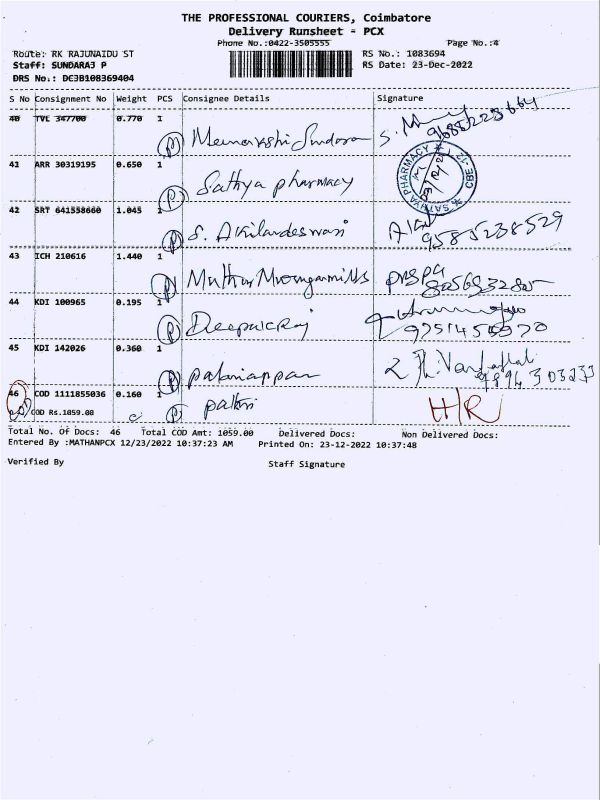 THE PROFESSIONAL COURIERS, Coimbatore
Delivery Runsheet - PCX
Phone No.:0422-3505555 Page No.:4
Route: RK RAJUNAIDU ST RS No.: 1083694
Staff: SUNDARAJ P RS Date: 23-Dec-2022
DRS No.: DCJB108369404
S No Consignment No Weight PCS Consignee Details Signature
40 TVL 347700 0.770 1
(P) Meenakshi Sundara S.
41 ARR 30319195 0.650 1
(P) Sathya pharmacy SATHYA PHARMACY ★ CBE-12 ★
42 SRT 641558660 1.045 1
(P) S. Akilandeswari 9585238529
43 ICH 210616 1.440 1
(P)
44 KDI 100965 0.195 1
(P) Deepakraj
45 KDI 142026 0.360 1
(P) palaniappan
46 COD 1111855036 0.160 1
COD Rs.1059.00 (P) H/R
Total No. Of Docs: 46 Total COD Amt: 1059.00 Delivered Docs: Non Delivered Docs:
Entered By :MATHANPCX 12/23/2022 10:37:23 AM Printed On: 23-12-2022 10:37:48
Verified By Staff Signature